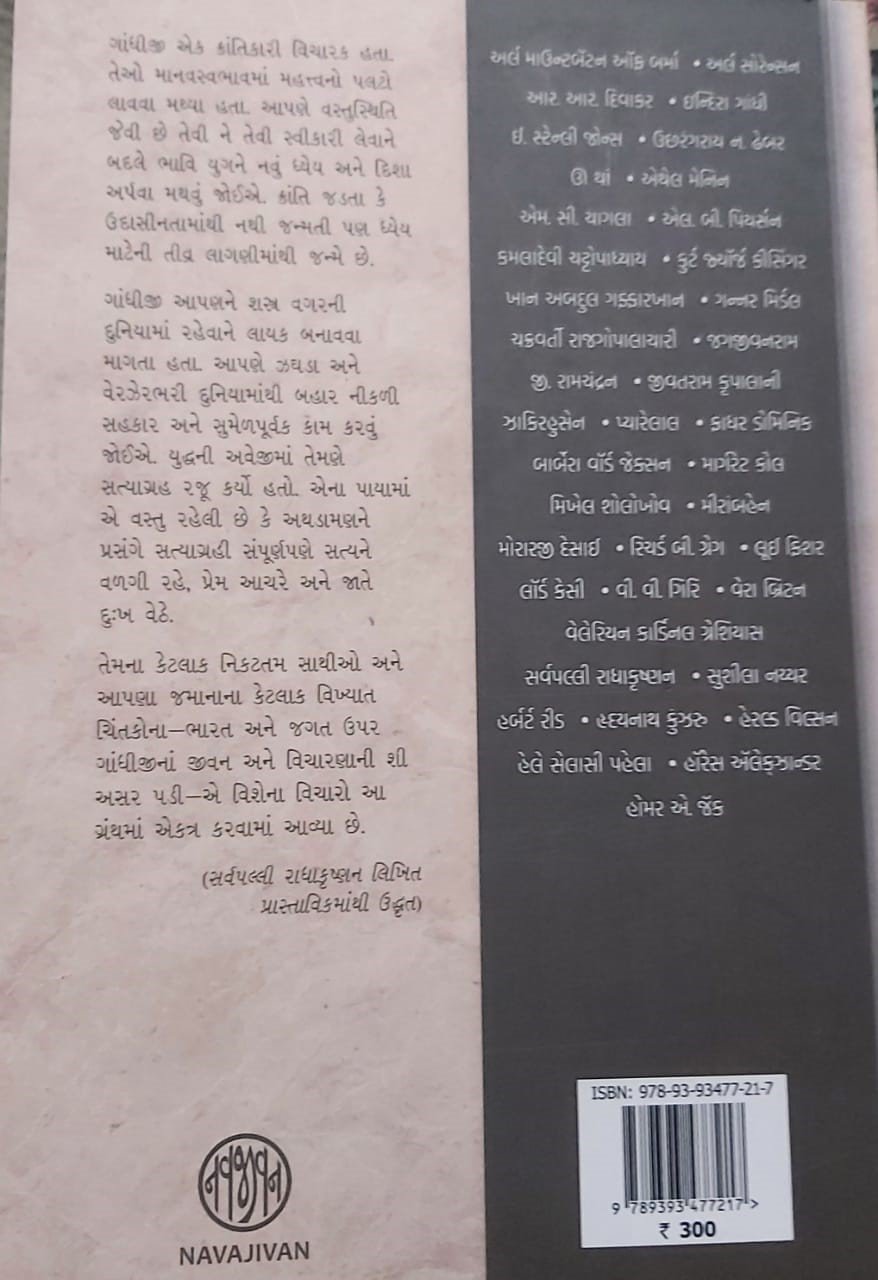 ગાંધીજી એક ક્રાંતિકારી વિચારક હતા.
તેઓ માનવસ્વભાવમાં મહત્ત્વનો પલટો
લાવવા મથ્યા હતા. આપણે વસ્તુસ્થિતિ
જેવી છે તેવી ને તેવી સ્વીકારી લેવાને
બદલે ભાવિ યુગને નવું ધ્યેય અને દિશા
અર્પવા મથવું જોઈએ. ક્રાંતિ જડતા કે
ઉદાસીનતામાંથી નથી જન્મતી પણ ધ્યેય
માટેની તીવ્ર લાગણીમાંથી જન્મે છે.
ગાંધીજી આપણને શસ્ત્ર વગરની
દુનિયામાં રહેવાને લાયક બનાવવા
માગતા હતા. આપણે ઝઘડા અને
વેરઝેરભરી દુનિયામાંથી બહાર નીકળી
સહકાર અને સુમેળપૂર્વક કામ કરવું
જોઈએ. યુદ્ધની અવેજીમાં તેમણે
સત્યાગ્રહ રજૂ કર્યો હતો. એના પાયામાં
એ વસ્તુ રહેલી છે કે અથડામણને
પ્રસંગે સત્યાગ્રહી સંપૂર્ણપણે સત્યને
વળગી રહે, પ્રેમ આચરે અને જાતે
દુઃખ વેઠે.
તેમના કેટલાક નિકટતમ સાથીઓ અને
આપણા જમાનાના કેટલાક વિખ્યાત
ચિંતકોના—ભારત અને જગત ઉપર
ગાંધીજીનાં જીવન અને વિચારણાની શી
અસર પડી—એ વિશેના વિચારો આ
ગ્રંથમાં એકત્ર કરવામાં આવ્યા છે.
(સર્વપલ્લી રાધાકૃષ્ણન લિખિત
પ્રાસ્તાવિકમાંથી ઉદ્ધૃત)
નવજીવન
NAVAJIVAN
અર્લ માઉન્ટબૅટન ઑફ બર્મા • અર્લ સોરેન્સન
આર. આર. દિવાકર • ઇન્દિરા ગાંધી
ઈ. સ્ટેન્લી જોન્સ • ઉછરંગરાય ન. ઢેબર
ઊ થાં • એથેલ મેનિન
એમ. સી. ચાગલા • એલ. બી. પિયર્સન
કમલાદેવી ચટ્ટોપાધ્યાય • કુર્ટ જ્યૉર્જ કીસિંગર
ખાન અબદુલ ગફ્ફારખાન • ગન્નર મિર્ડલ
ચક્રવર્તી રાજગોપાલાચારી • જગજીવનરામ
જી. રામચંદ્રન • જીવતરામ કૃપાલાની
ઝાકિરહુસેન • પ્યારેલાલ • ફાધર ડોમિનિક
બાર્બરા વૉર્ડ જેક્સન • માર્ગારેટ કોલ
મિખેલ શોલોખોવ • મીરાંબહેન
મોરારજી દેસાઈ • રિચર્ડ બી. ગ્રેગ • લૂઈ ફિશર
લૉર્ડ કેસી • વી. વી. ગિરિ • વેરા બ્રિટન
વેલેરિયન કાર્ડિનલ ગ્રેશિયાસ
સર્વપલ્લી રાધાકૃષ્ણન • સુશીલા નય્યર
હર્બર્ટ રીડ • હૃદયનાથ કુંઝરુ • હેરલ્ડ વિલ્સન
હેલે સેલાસી પહેલા • હૉરેસ ઍલેક્ઝાન્ડર
હોમર એ. જૅક
ISBN: 978-93-93477-21-7
9 789393 477217 >
₹ 300